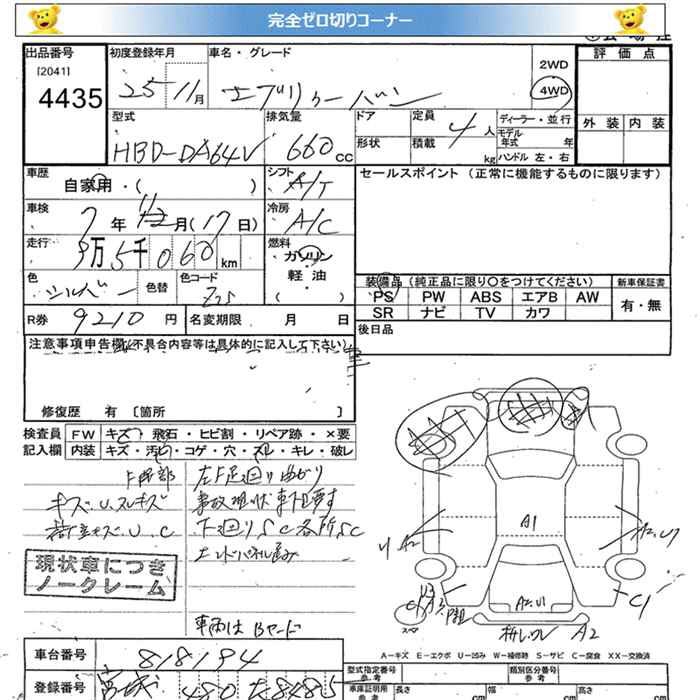 完全ゼロ切りコーナー
出品番号
[2041]
4435
初度登録年月
25 11月
車名・グレード
エブリゥーバン
2WD
4WD
評価点
外装 内装
型式
HBD-DA64V
排気量
660cc
ドア
形状
定員
4人
積載
kg
ディーラー・並行
モデル年式 年
ハンドル 左・右
車歴
自家用・( )
シフト
A/T
車検
7年 11月(17日)
冷房
A/C
走行
9万5千060km
燃料
ガソリン
軽油
( )
色
シルバー
色替
色コード
Z2S
R券 9210円
名変期限 月 日
セールスポイント(正常に機能するものに限ります)
装備品(純正品に限り○をつけてください)
新車保証書
PS PW ABS エアB AW
SR ナビ TV カワ
有・無
後日品
注意事項申告欄(不具合内容等は具体的に記入して下さい)
修復歴 有 〔箇所 〕
検査員記入欄
FW キズ・飛石・ヒビ割・リペア跡・×要
内装 キズ・汚レ・コゲ・穴・スレ・キレ・破レ
下廻り
キズ、U、スレキズ
左F足廻り曲がり
事故現状車
下廻りS,C 各所S,C
エンドパネル歪み
現状車につきノークレーム
車両はBヤード
A1
A2
A2,U1
U1
C1
スペア
A2
A=キズ E=エクボ U=凹み W=補修跡 S=サビ C=腐食 XX=交換済
車台番号
818194
登録番号
宮城 480 8485
型式指定番号 参考
類別区分番号 参考
車庫証明用 参考
長さ cm
幅 cm
高さ cm